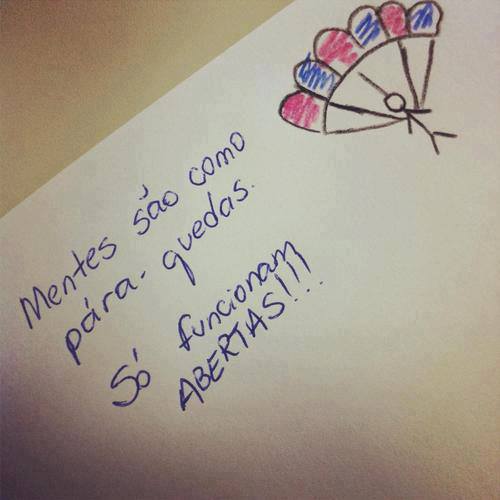 Mentes são como
pára-quedas.
Só funcionam
ABERTAS!!!...